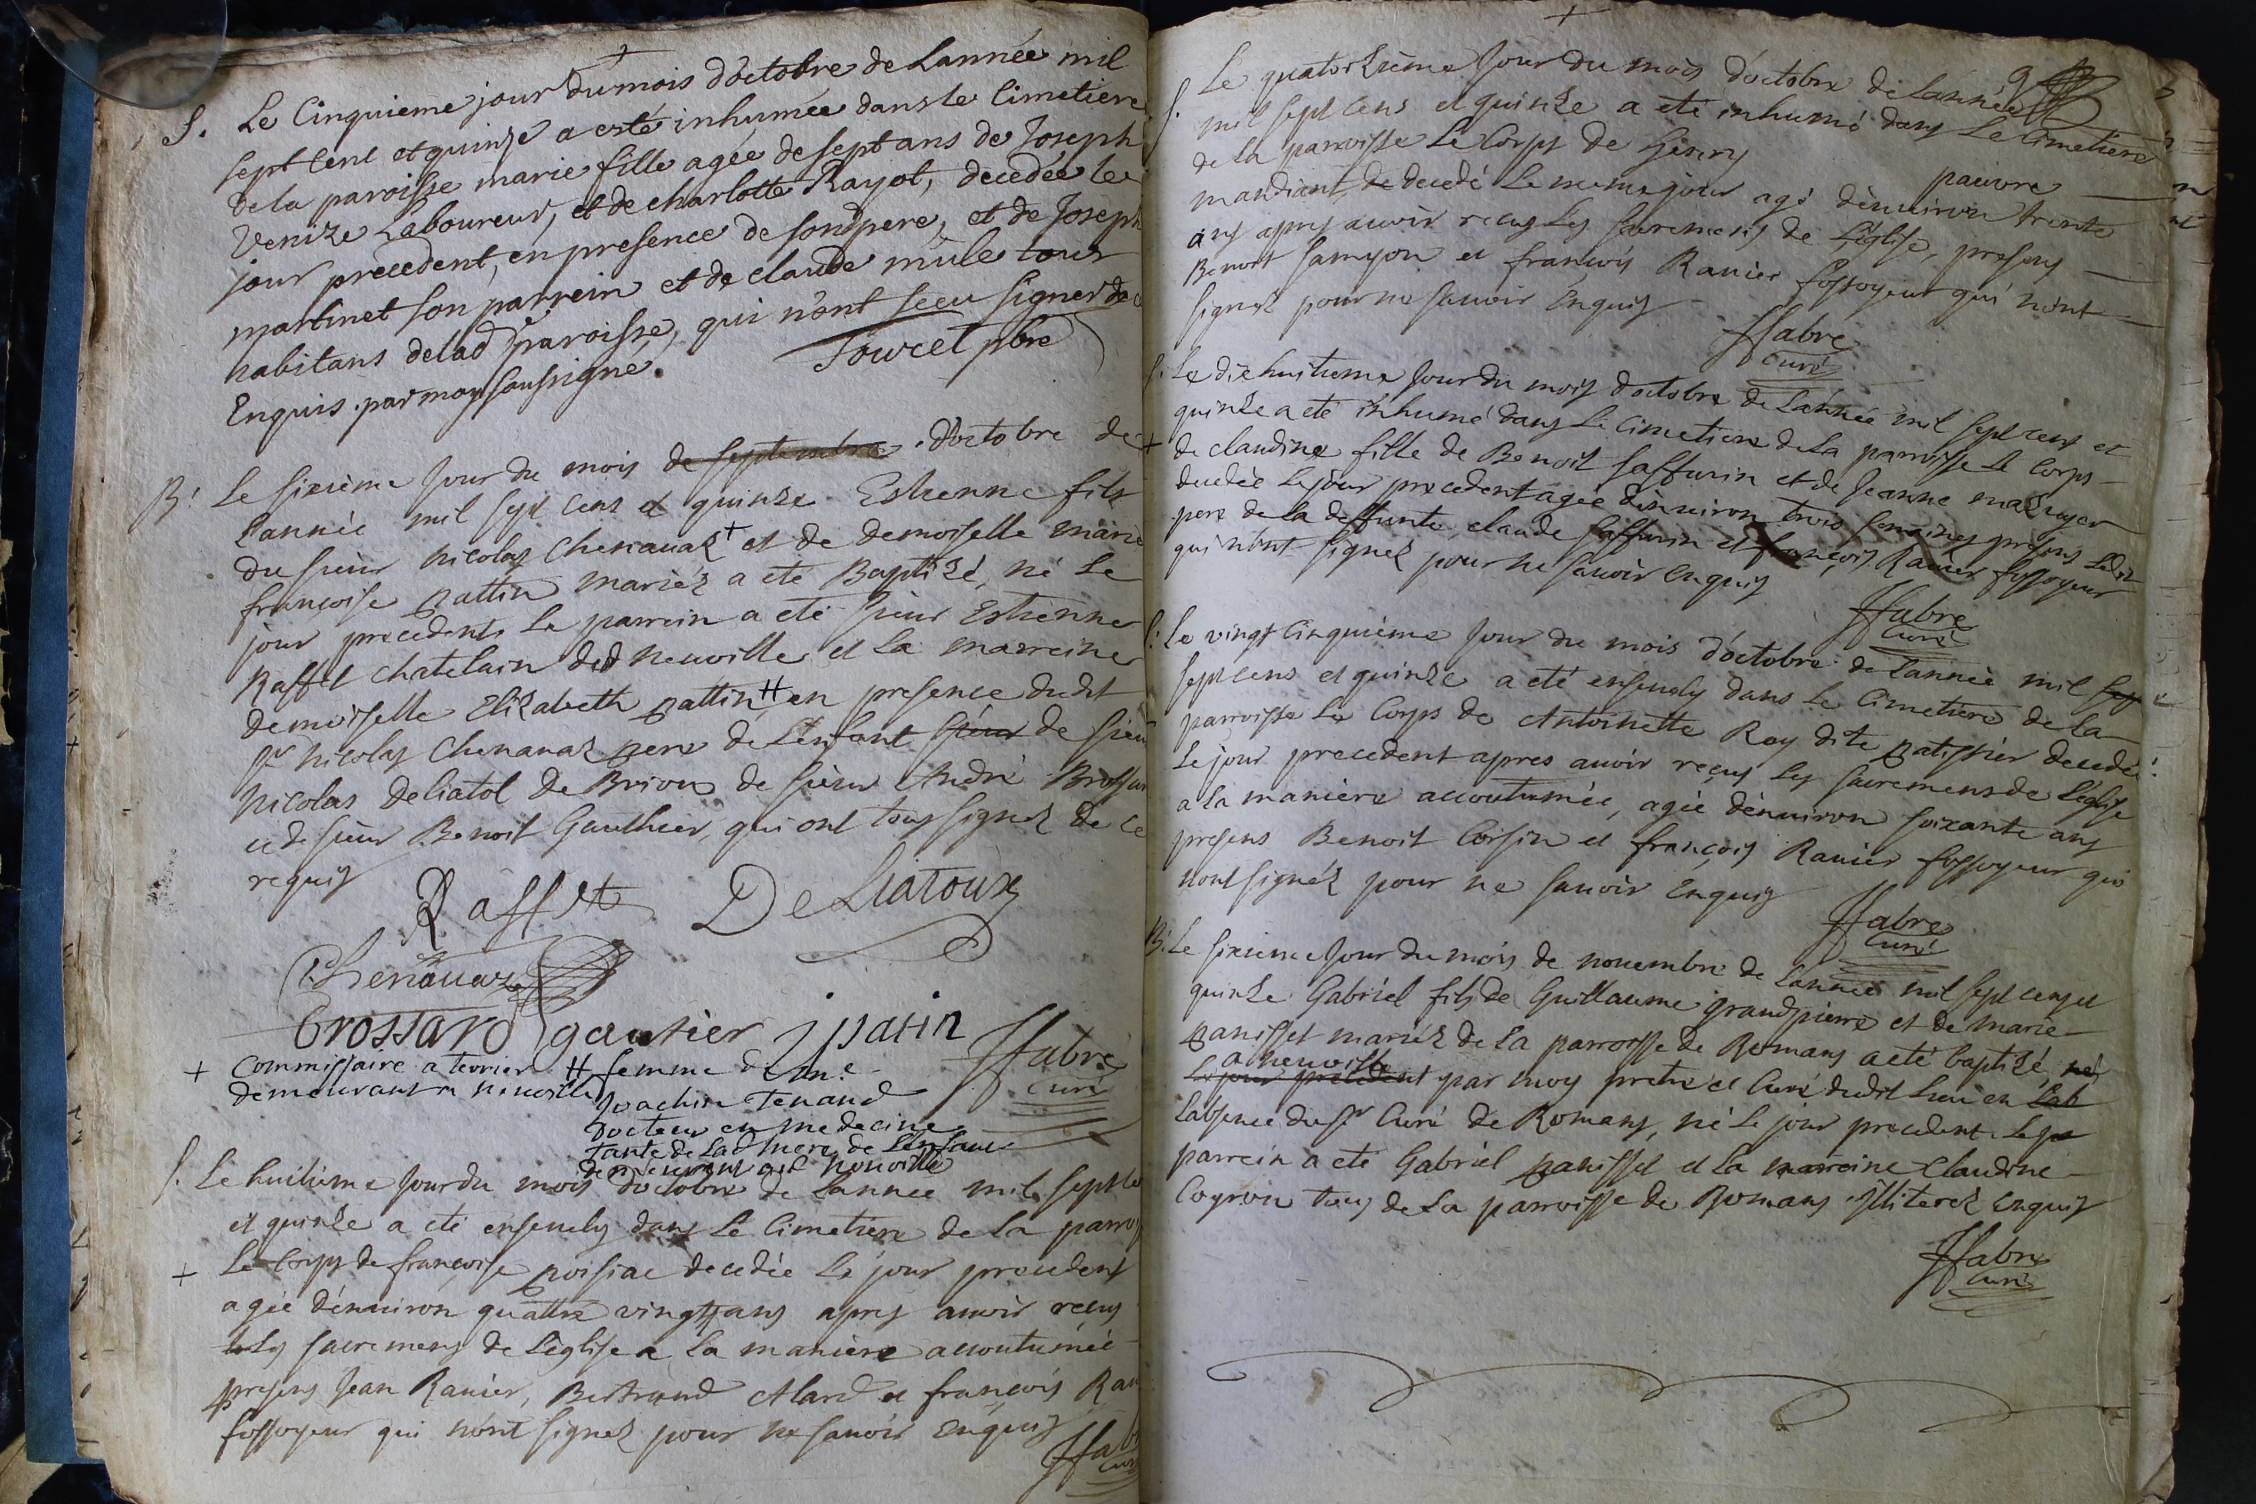 S. Le Cinquieme jour du mois d'octobre de Lannée mil
sept cent et quinze a esté inhumée dans le Cimetiere
de la paroisse marie fille agée de sept ans de Joseph
Venize Laboureur, et de charlotte Rayot, decedée le
jour precedent, en presence de son pere, et de Joseph
martinet son parrein et de claude mule tous
habitans de lad. paroisse, qui n'ont sceu signer de ce
Enquis. par moy soussigné.
Fourcet pbre
B. Le sixième Jour du mois de septembre d'octobre de
Lannée mil sept cens et quinze Estienne fils
du sieur nicolas Chenauaz + et de demoiselle marie
françoise pattin mariéz a eté Baptizé, né Le
jour precedent. Le parrein a eté sieur Estienne
Raffet chatelain dud neuville et La marreine
demoiselle Elizabeth pattin # en presence dudt
Sr nicolas Chenauaz pere de L'enfant sieur de sieur
nicolas deliatol de Brioux de sieur André Brossar
et de sieur Benoit Gauthier, qui ont tous signez de ce
requiz
Raffet DeLiatoux
Chenauaz
brossard gautier j patin
ffabre
Curé
+ Commissaire a terrier
demeurant a neuville
# femme de me
Joachin Tenand
Docteur en medecine
tante de Lad mere de L'enfant
demeurant aud neuville
S. Le huitieme Jour du mois d'octobre de Lannée mil sept ce
et quinze a eté enseuely dans Le Cimetiere de La parroi
+ Le Corps de françoise poisiac decedée Le jour precedent
agée d'enuiron quattre vingts ans apres auoir reçus
Les sacremens de L'eglise a La maniere accoutumée
presens Jean Rauier, Bertrand Alard et françois Rau
fossoyeur qui n'ont signez pour ne sauoir Enquiz
ffab
Cur
9
S. Le quatorzieme Jour du mois d'octobre de Lannée
mil sept cens et quinze a eté inhumé dans Le Cimetiere
de La parroisse Le Corps de pauvre
mandiant de decedé Le meme jour agé d'enuiron trente
ans apres auoir reçus Les sacremens de L'eglise, presens
Benoit Samyon et françois Rauier fossoyeur qui n'ont
signez pour ne sauoir Enquiz
ffabre
Curé
S. Le dix huitieme Jour du mois d'octobre de Lannée mil sept cens et
quinze a eté inhumé dans Le Cimetiere de La parroisse Le Corps
+ de claudine fille de Benoit Saffurin et de Jeanne mazuyer
decedée Le jour precedent agée d'enuiron trois semaines presens Ledit
pere de La deffunte, claude Saffurin et françois Rauier fossoyeur
qui n'ont signez pour ne sauoir enquiz
ffabre
Curé
S. Le vingt Cinquième Jour du mois d'octobre de Lannée mil sep
sept cens et quinze a eté enseuely dans Le Cimetiere de La
parroisse Le Corps de Antoinette Roy dite patissier decedée
Le jour precedent apres auoir reçus Les sacremens de L'eglise
a La maniere accoutumée, agée d'enuiron soixante ans
presens Benoit Corsin et françois Rauier fossoyeur qui
n'ont signéz pour ne sauoir Enquiz
ffabre
Curé
B. Le sixieme Jour du mois de nouembre de Lannée mil sept cens et
quinze Gabriel fils de Guillaume grandpierre et de marie
panisset mariéz de La parroisse de Romans a eté baptizé né
a neuville
Le jour precedent par moy pretre et Curé dudit Lieu en Lab
L'absence du Sr Curé de Romans, né Le jour precedent. Le pa
parrein a eté Gabriel panisset et La marreine Claudine
Coyron tous de La parroisse de Romans illiterez Enquiz
ffabre
Curé